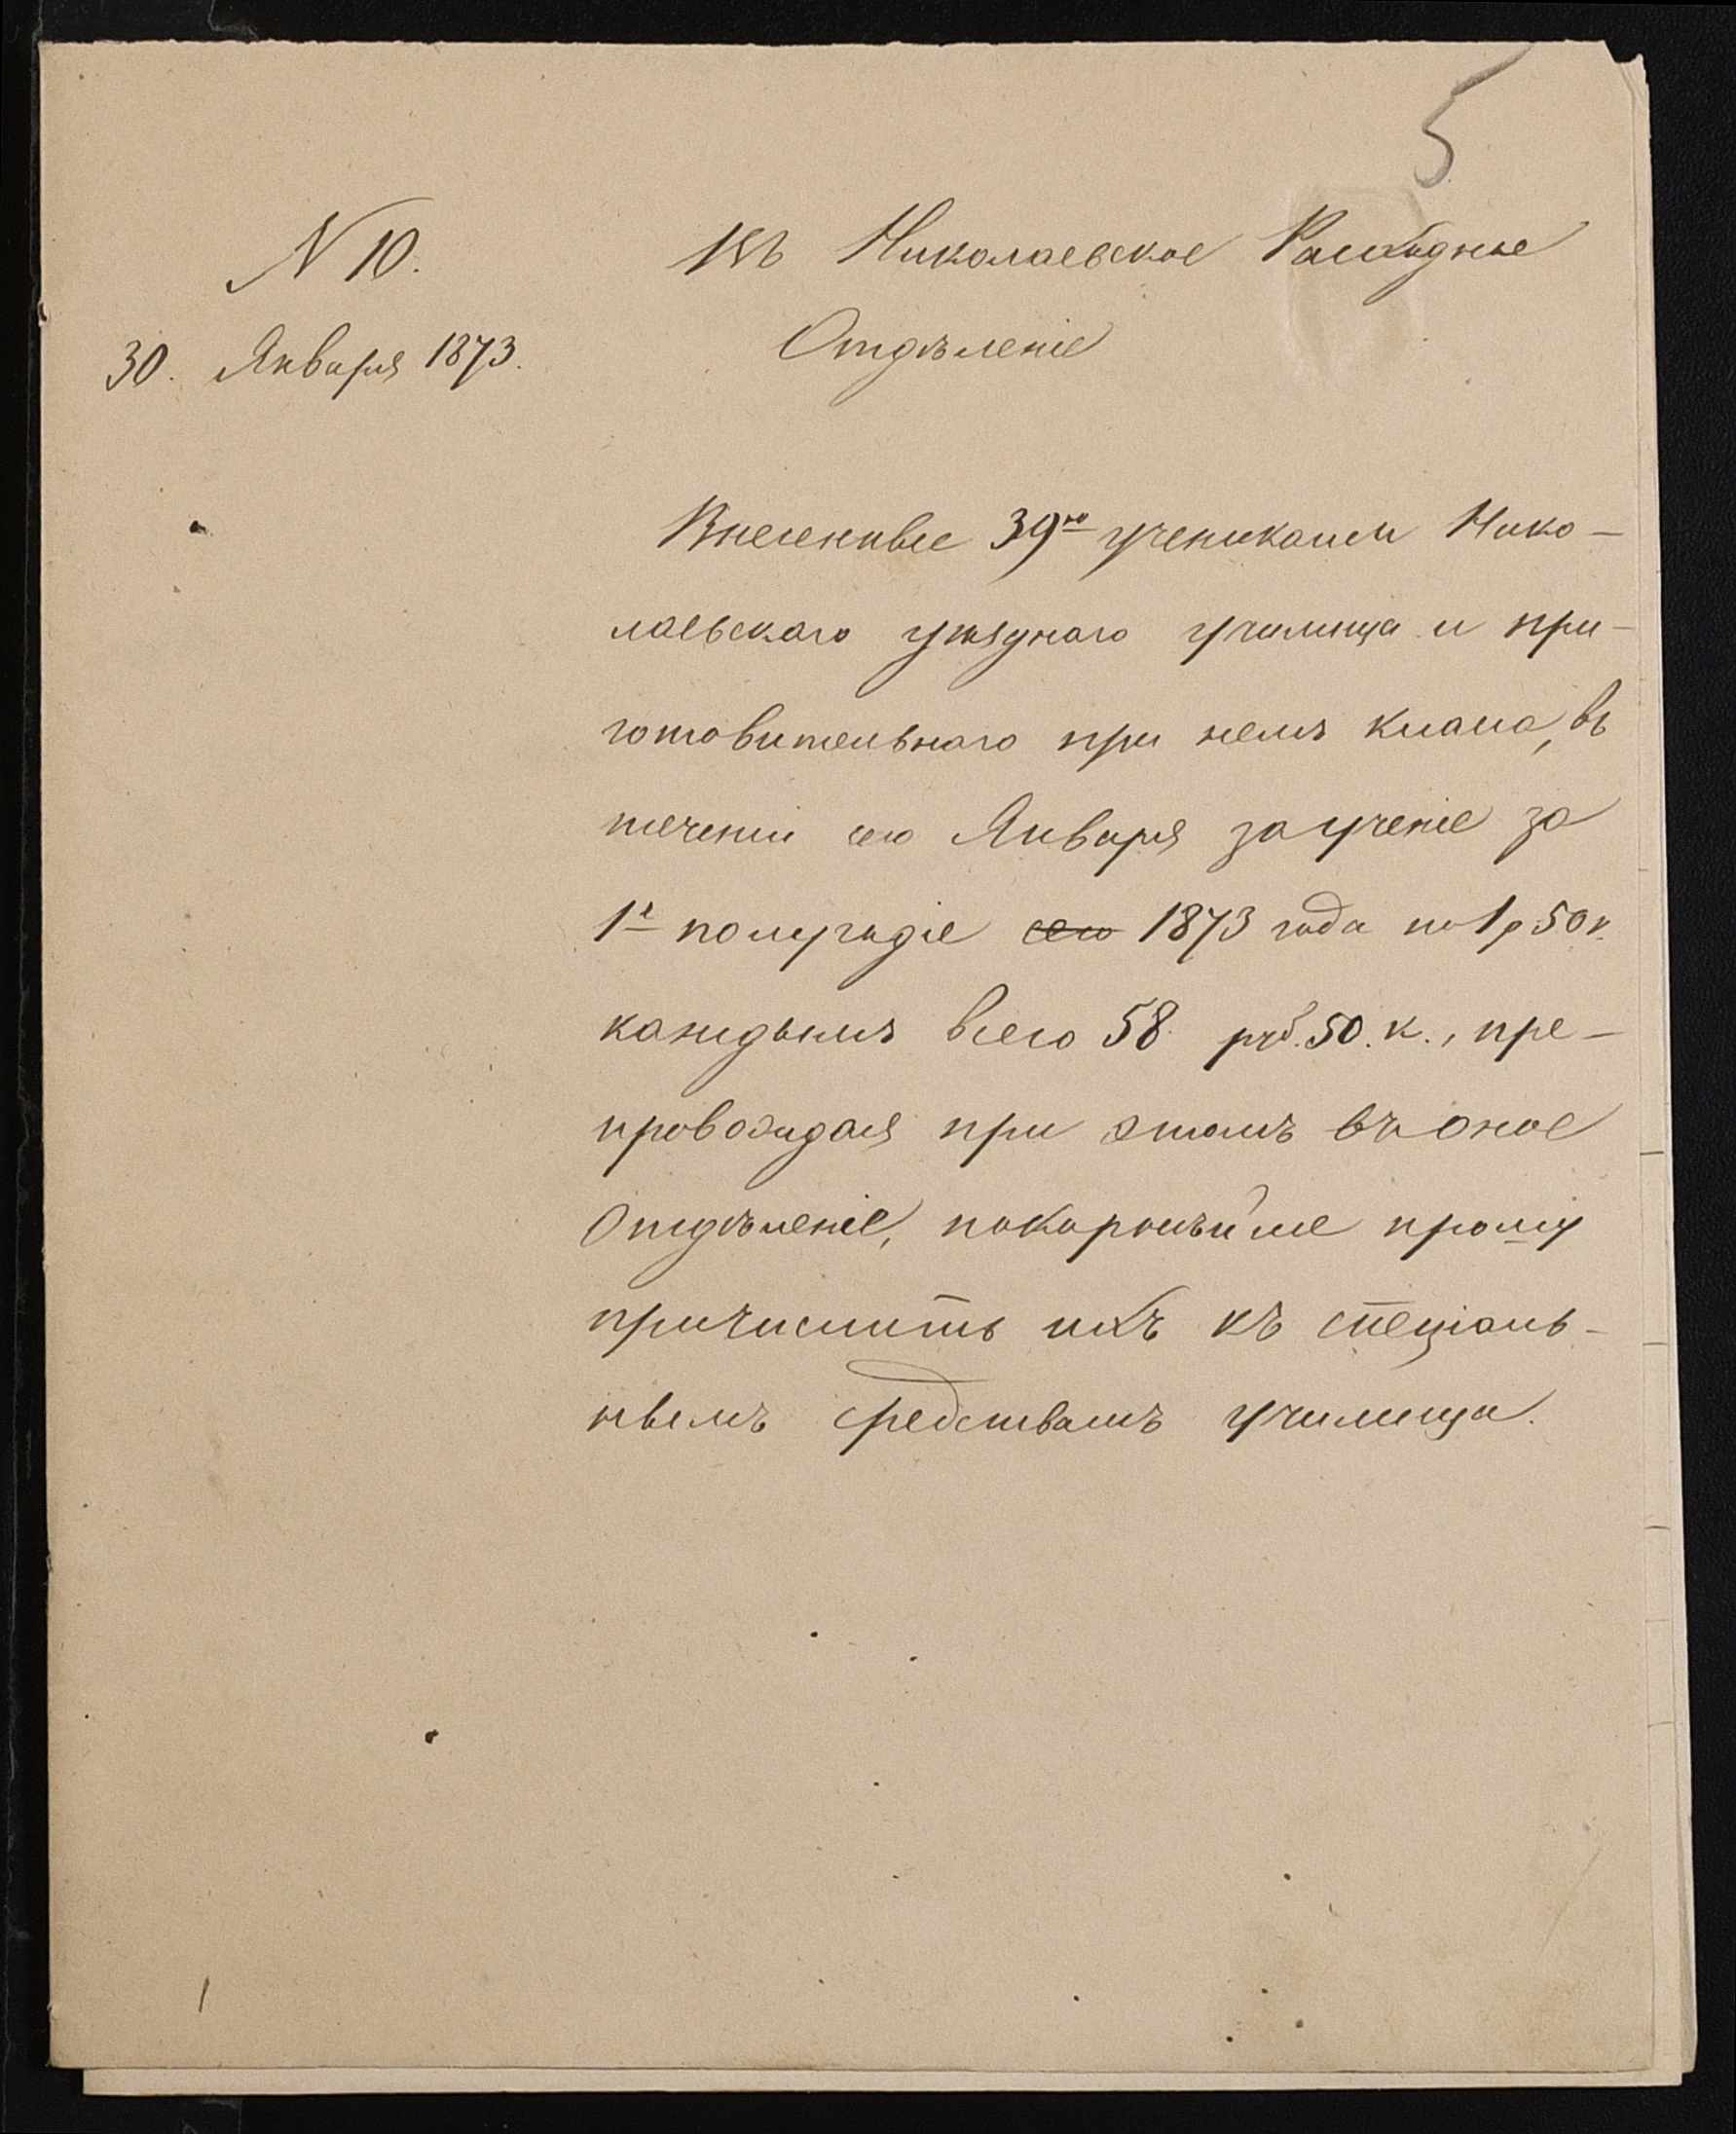 5
N 10.
30. Января 1873.
Въ Николаевское Расходное
Отдѣленіе
Внесенные 39ю учениками Нико-
лаевскаго уѣзднаго училища и при-
готовительнаго при немъ класса, въ
теченіи сего Января за ученіе за
1е полугодіе сего 1873 года по 1 р 50 к.
каждымъ всего 58 руб. 50. к., пре-
провождая при этомъ въ оное
Отдѣленіе, покорнѣйше прошу
причислить ихъ къ спеціаль-
нымъ средствамъ училища.